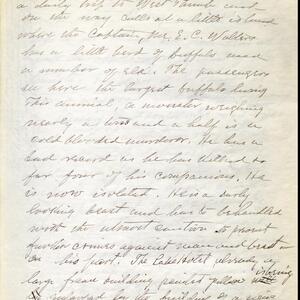 a daily trip to West Thumb and
on the way calls at a little island
where the Captain, Mr. E. C. Waters
has a little herd of buffalo and
a number of elk. The passengers
see here the largest buffalo living
this animal, a monster weighing
nearly a ton and a half is a
cold blooded murderer. He has a
bad record as he has killed so
far four of his companions. He
is now isolated. He is a surly
looking beast and has to be handled
with the utmost caution to prevent
further crimes against man and beast
on his part. The Lake Hotel already a
large frame building painted yellow is being
enlarged for the